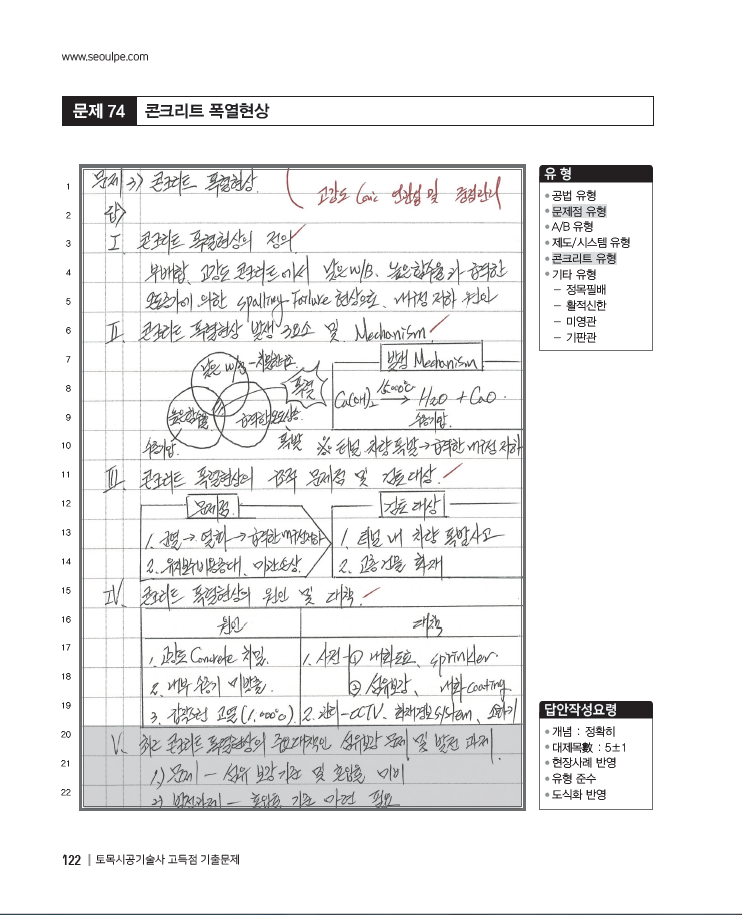 www.seoulpe.com
문제 74 콘크리트 폭열현상
1 문제 3) 콘크리트 폭열현상. 고강도 Conc 연관성 및 중점관리
2 답)
3 I. 콘크리트 폭열현상의 정의
4 부배합, 고강도 콘크리트에서 낮은 W/B, 높은 함수율과 급격한
5 온도증가에 의한 Spalling Failure 현상으로, 내구성 저하 원인
6 II. 콘크리트 폭열현상 발생 3요소 및 Mechanism
7 낮은 W/B - 치밀한 발생 Mechanism
8 폭열 Ca(OH)2 → H2O + CaO.
9 높은함수율 급격한 온도상승 수증기압
10 수증기압 폭발 ※ 터널 차량폭발→급격한 내구성 저하
11 III. 콘크리트 폭열현상의 문제점 및 검토대상.
12 문제점 검토대상
13 1. 균열→열화→급격한 내구성저하 1. 터널 내 차량 폭발사고
14 2. 유지보수비용증대, 미관손상. 2. 고층건물 화재
15 IV. 콘크리트 폭열현상의 원인 및 대책.
16 원인 대책
17 1. 고강도 Concrete 치밀. 1. 사전-① 내화도료, sprinkler.
18 2. 내부 수증기 미방출. ② 섬유보강, 내화 coating.
19 3. 고열(1,000℃). 2. 관리-CCTV, 화재경보 system, 소화기
20 V. 최근 콘크리트 폭열현상의 주요대책인 섬유보강 문제 및 발전 과제.
21 1) 문제 - 섬유 보강 기준 및 혼입율 미비
22 2) 발전과제 - 혼입율 기준 마련 필요
유 형
• 공법 유형
• 문제점 유형
• A/B 유형
• 제도/시스템 유형
• 콘크리트 유형
• 기타 유형
– 정목필배
– 활적신한
– 미영관
– 기판관
답안작성요령
• 개념 : 정확히
• 대제목數 : 5±1
• 현장사례 반영
• 유형 준수
• 도식화 반영
122 | 토목시공기술사 고득점 기출문제